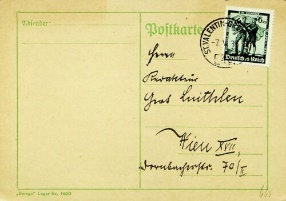 Absender:
Postkarte
ST. VALENTIN
6
Deutsches Reich
Herrn
Redakteur
Graf Luithlen
Wien XVII,
Dornbacherstr. 70/I
"Europa" Lager-Nr. 1603